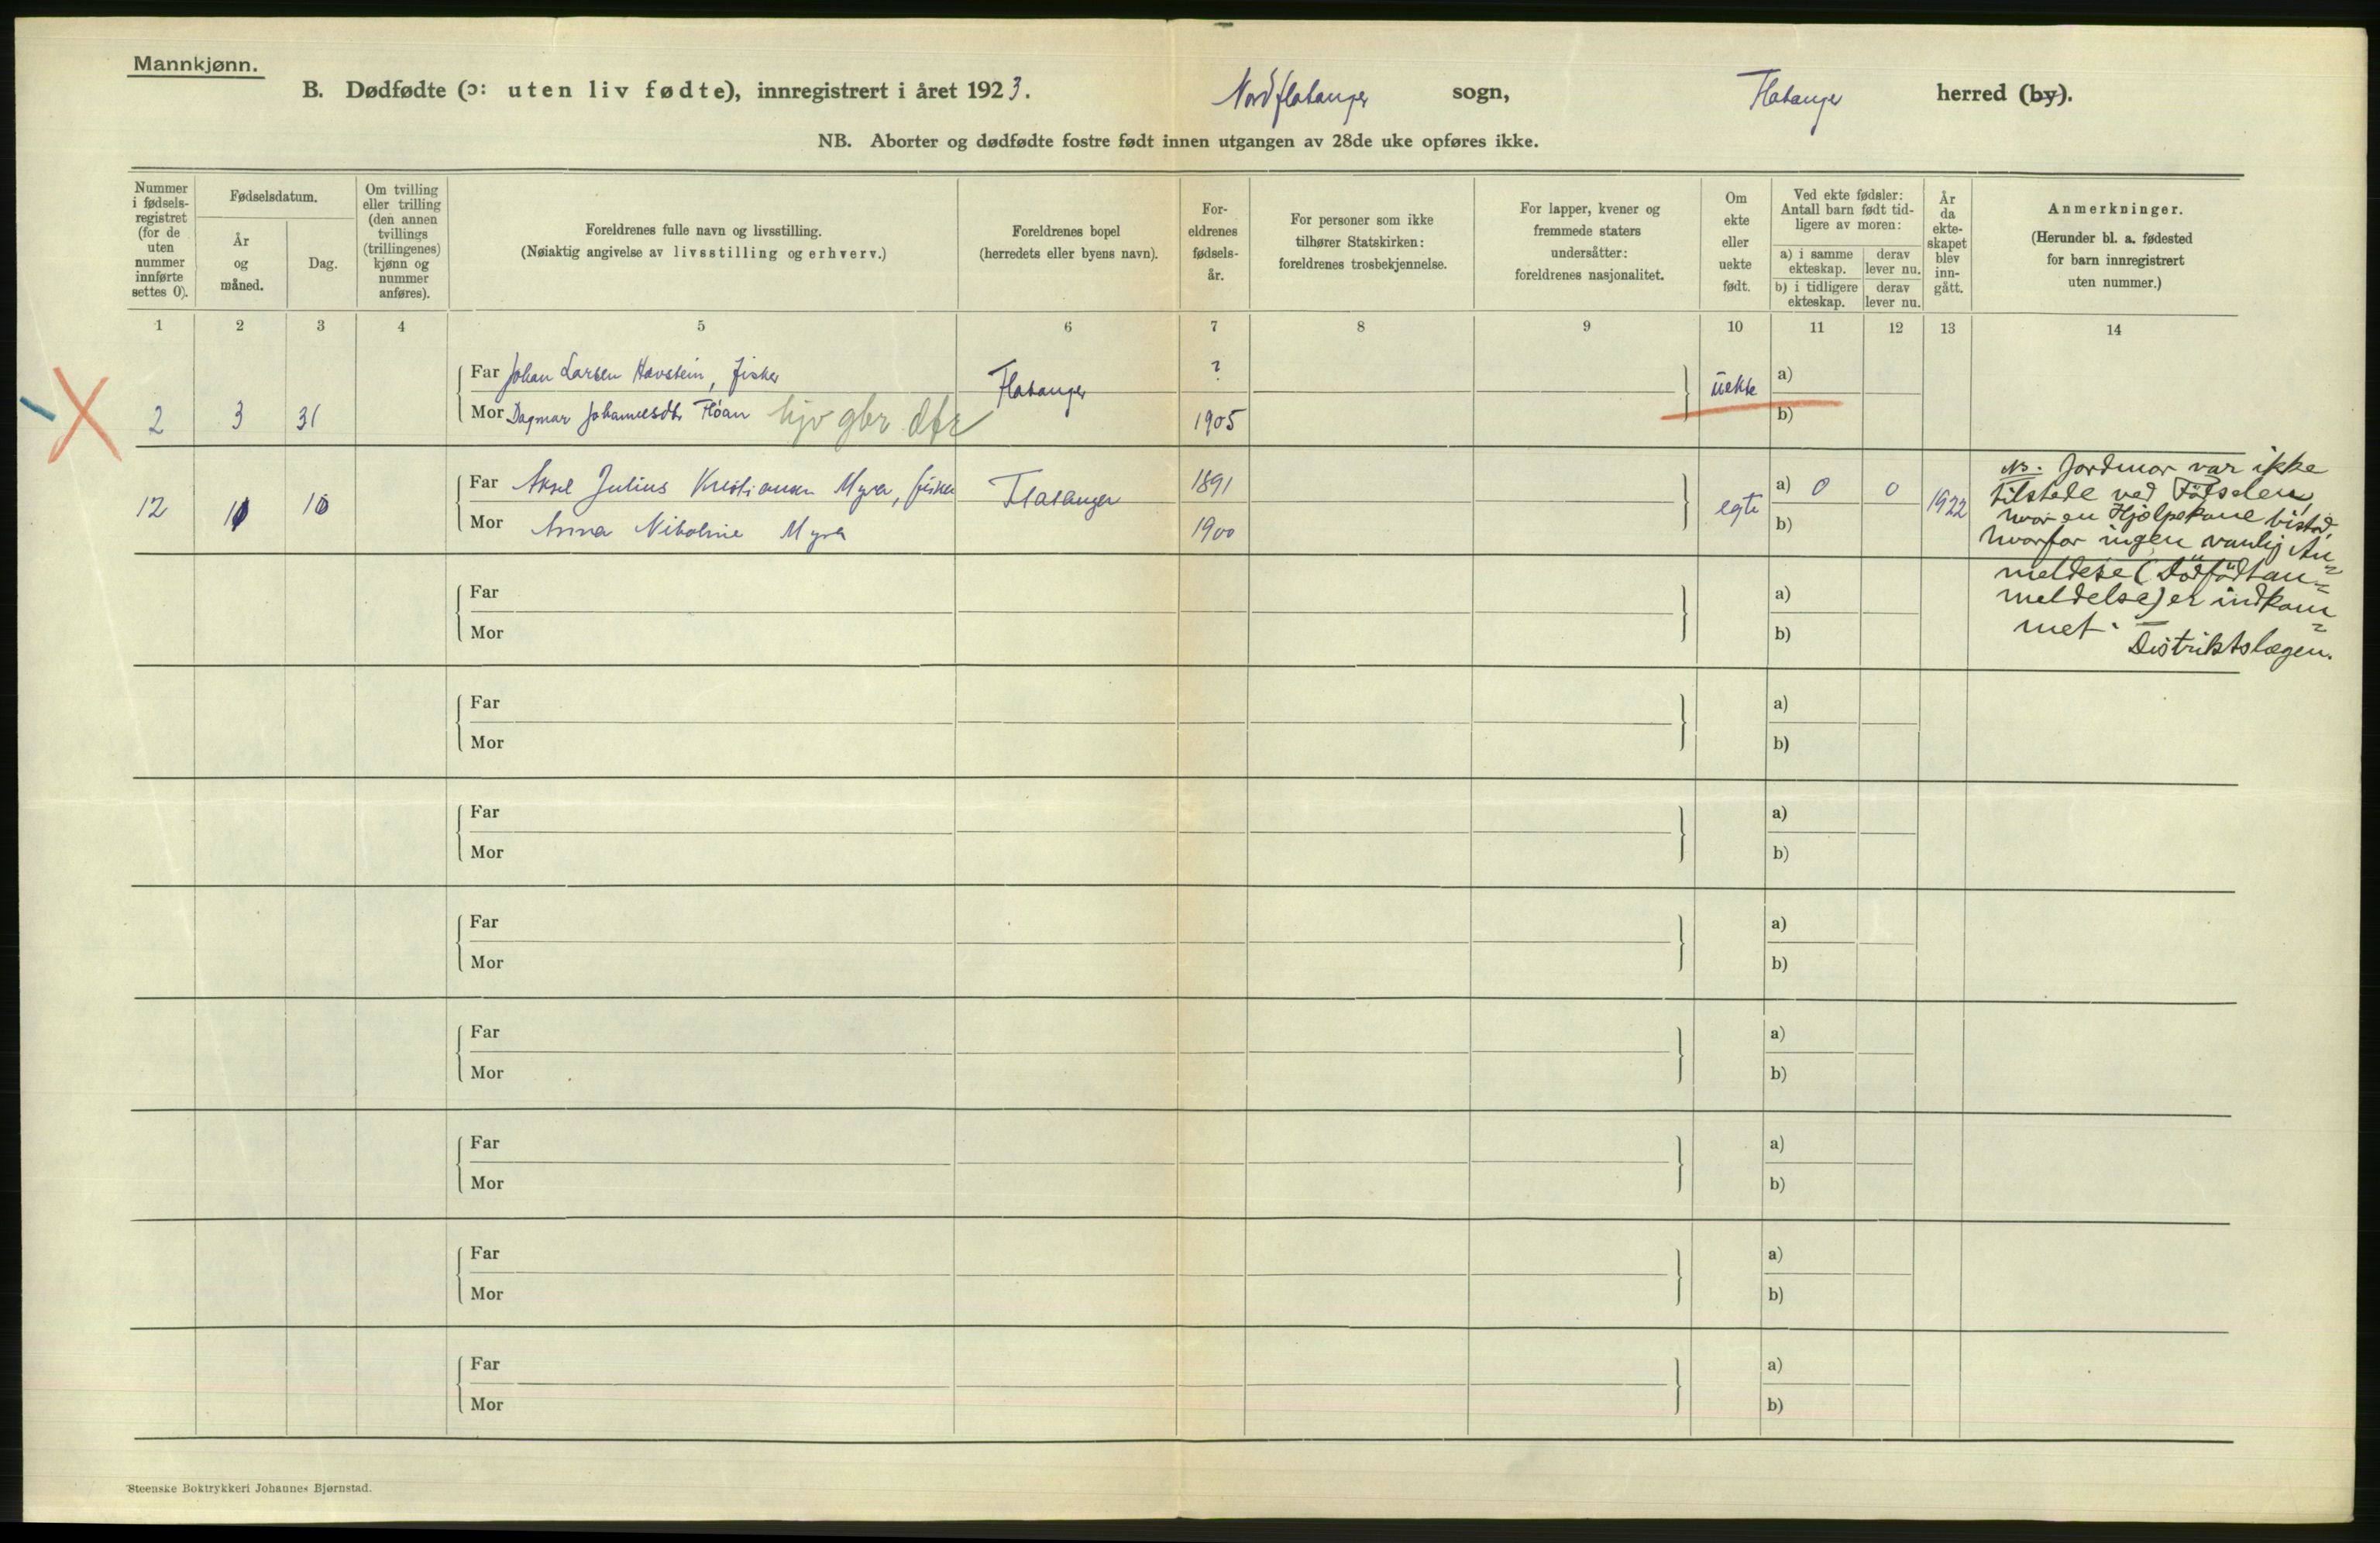 Mannkjønn.
B. Dødfødte (ɔ: uten liv fødte), innregistrert i året 1923. Nordflatanger sogn, Flatanger herred (by).
NB. Aborter og dødfødte fostre født innen utgangen av 28de uke opføres ikke.
Nummer i fødsels-registret (for de uten nummer innførte settes 0).
Fødselsdatum.
År og måned.
Dag.
Om tvilling eller trilling (den annen tvillings (trillingenes) kjønn og nummer anføres).
Foreldrenes fulle navn og livsstilling.
(Nøiaktig angivelse av livsstilling og erhverv.)
Foreldrenes bopel
(herredets eller byens navn).
For-eldrenes fødsels-år.
For personer som ikke tilhører Statskirken: foreldrenes trosbekjennelse.
For lapper, kvener og fremmede staters undersåtter: foreldrenes nasjonalitet.
Om ekte eller uekte født.
Ved ekte fødsler: Antall barn født tid-ligere av moren:
a) i samme ekteskap.
derav lever nu.
b) i tidligere ekteskap.
derav lever nu.
År da ekte-skapet blev inn-gått.
Anmerkninger.
(Herunder bl. a. fødested for barn innregistrert uten nummer.)
1 2 3 4 5 6 7 8 9 10 11 12 13 14
Far Johan Larsen Havstein, fisker Flatanger ? uekte a)
2 3 31 Mor Dagmar Johannesdtr Fløan hjv gbr dtr 1905 b)
12 11 10 Far Aksel Julius Kristiansen Myra, fisker Flatanger 1891 egte a) 0 0 1922
Mor Anna Nikoline Myra 1900 b)
NB. Jordmor var ikke
tilstede ved Födselen,
hvor en Hjælpekone bistod,
hvorfor ingen vanlig An=
meldese (Dödfödtan=
meldelse) er indkom=
met.
Distriktslægen.
Far a)
Mor b)
Far a)
Mor b)
Far a)
Mor b)
Far a)
Mor b)
Far a)
Mor b)
Far a)
Mor b)
Far a)
Mor b)
Far a)
Mor b)
Steenske Boktrykkeri Johannes Bjørnstad.